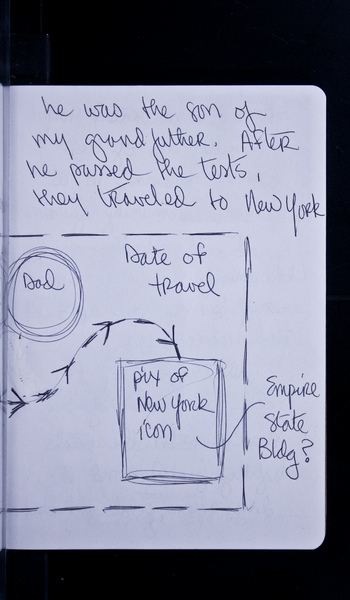 he was the son of
my grandfather. After
he passed the tests,
they traveled to New York
Dad
Date of
travel
pix of
New York
icon
Empire
State
Bldg?